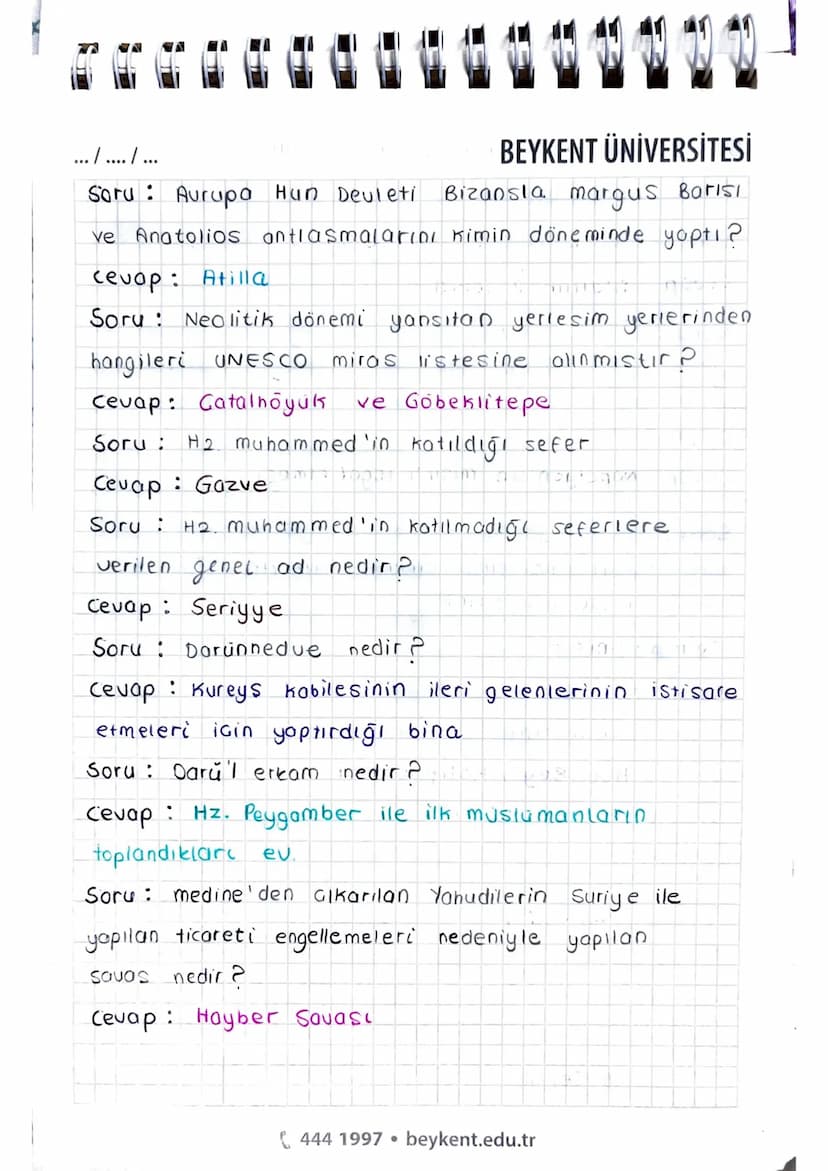 ... / .... / ...
BEYKENT ÜNİVERSİTESİ
Soru : Avrupa Hun Devleti Bizansla margus Barısı
ve Anatolios antlasmalarını kimin döneminde yaptı?
Cevap : Atilla
Soru : Neolitik dönemi yansıtan yerlesim yerlerinden
hangileri UNESCO miras listesine alınmıstır?
Cevap : Catalhöyük ve Göbeklitepe
Soru : Hz muhammed'in katıldığı sefer
Cevap : Gazve
Soru : Hz. muhammed'in katılmadığı seferlere
verilen genel ad nedir?
Cevap : Seriyye
Soru : Darünnedve nedir?
Cevap : Kureys kabilesinin ileri gelenlerinin istisare
etmeleri icin yaptırdığı bina
Soru : Darü'l erkam nedir?
Cevap : Hz. Peygamber ile ilk muslumanların
toplandıkları ev.
Soru : medine'den cıkarılan Yahudilerin Suriye ile
yapılan ticareti engellemeleri nedeniyle yapılan
savas nedir?
Cevap : Hayber Savası
444 1997 • beykent.edu.tr